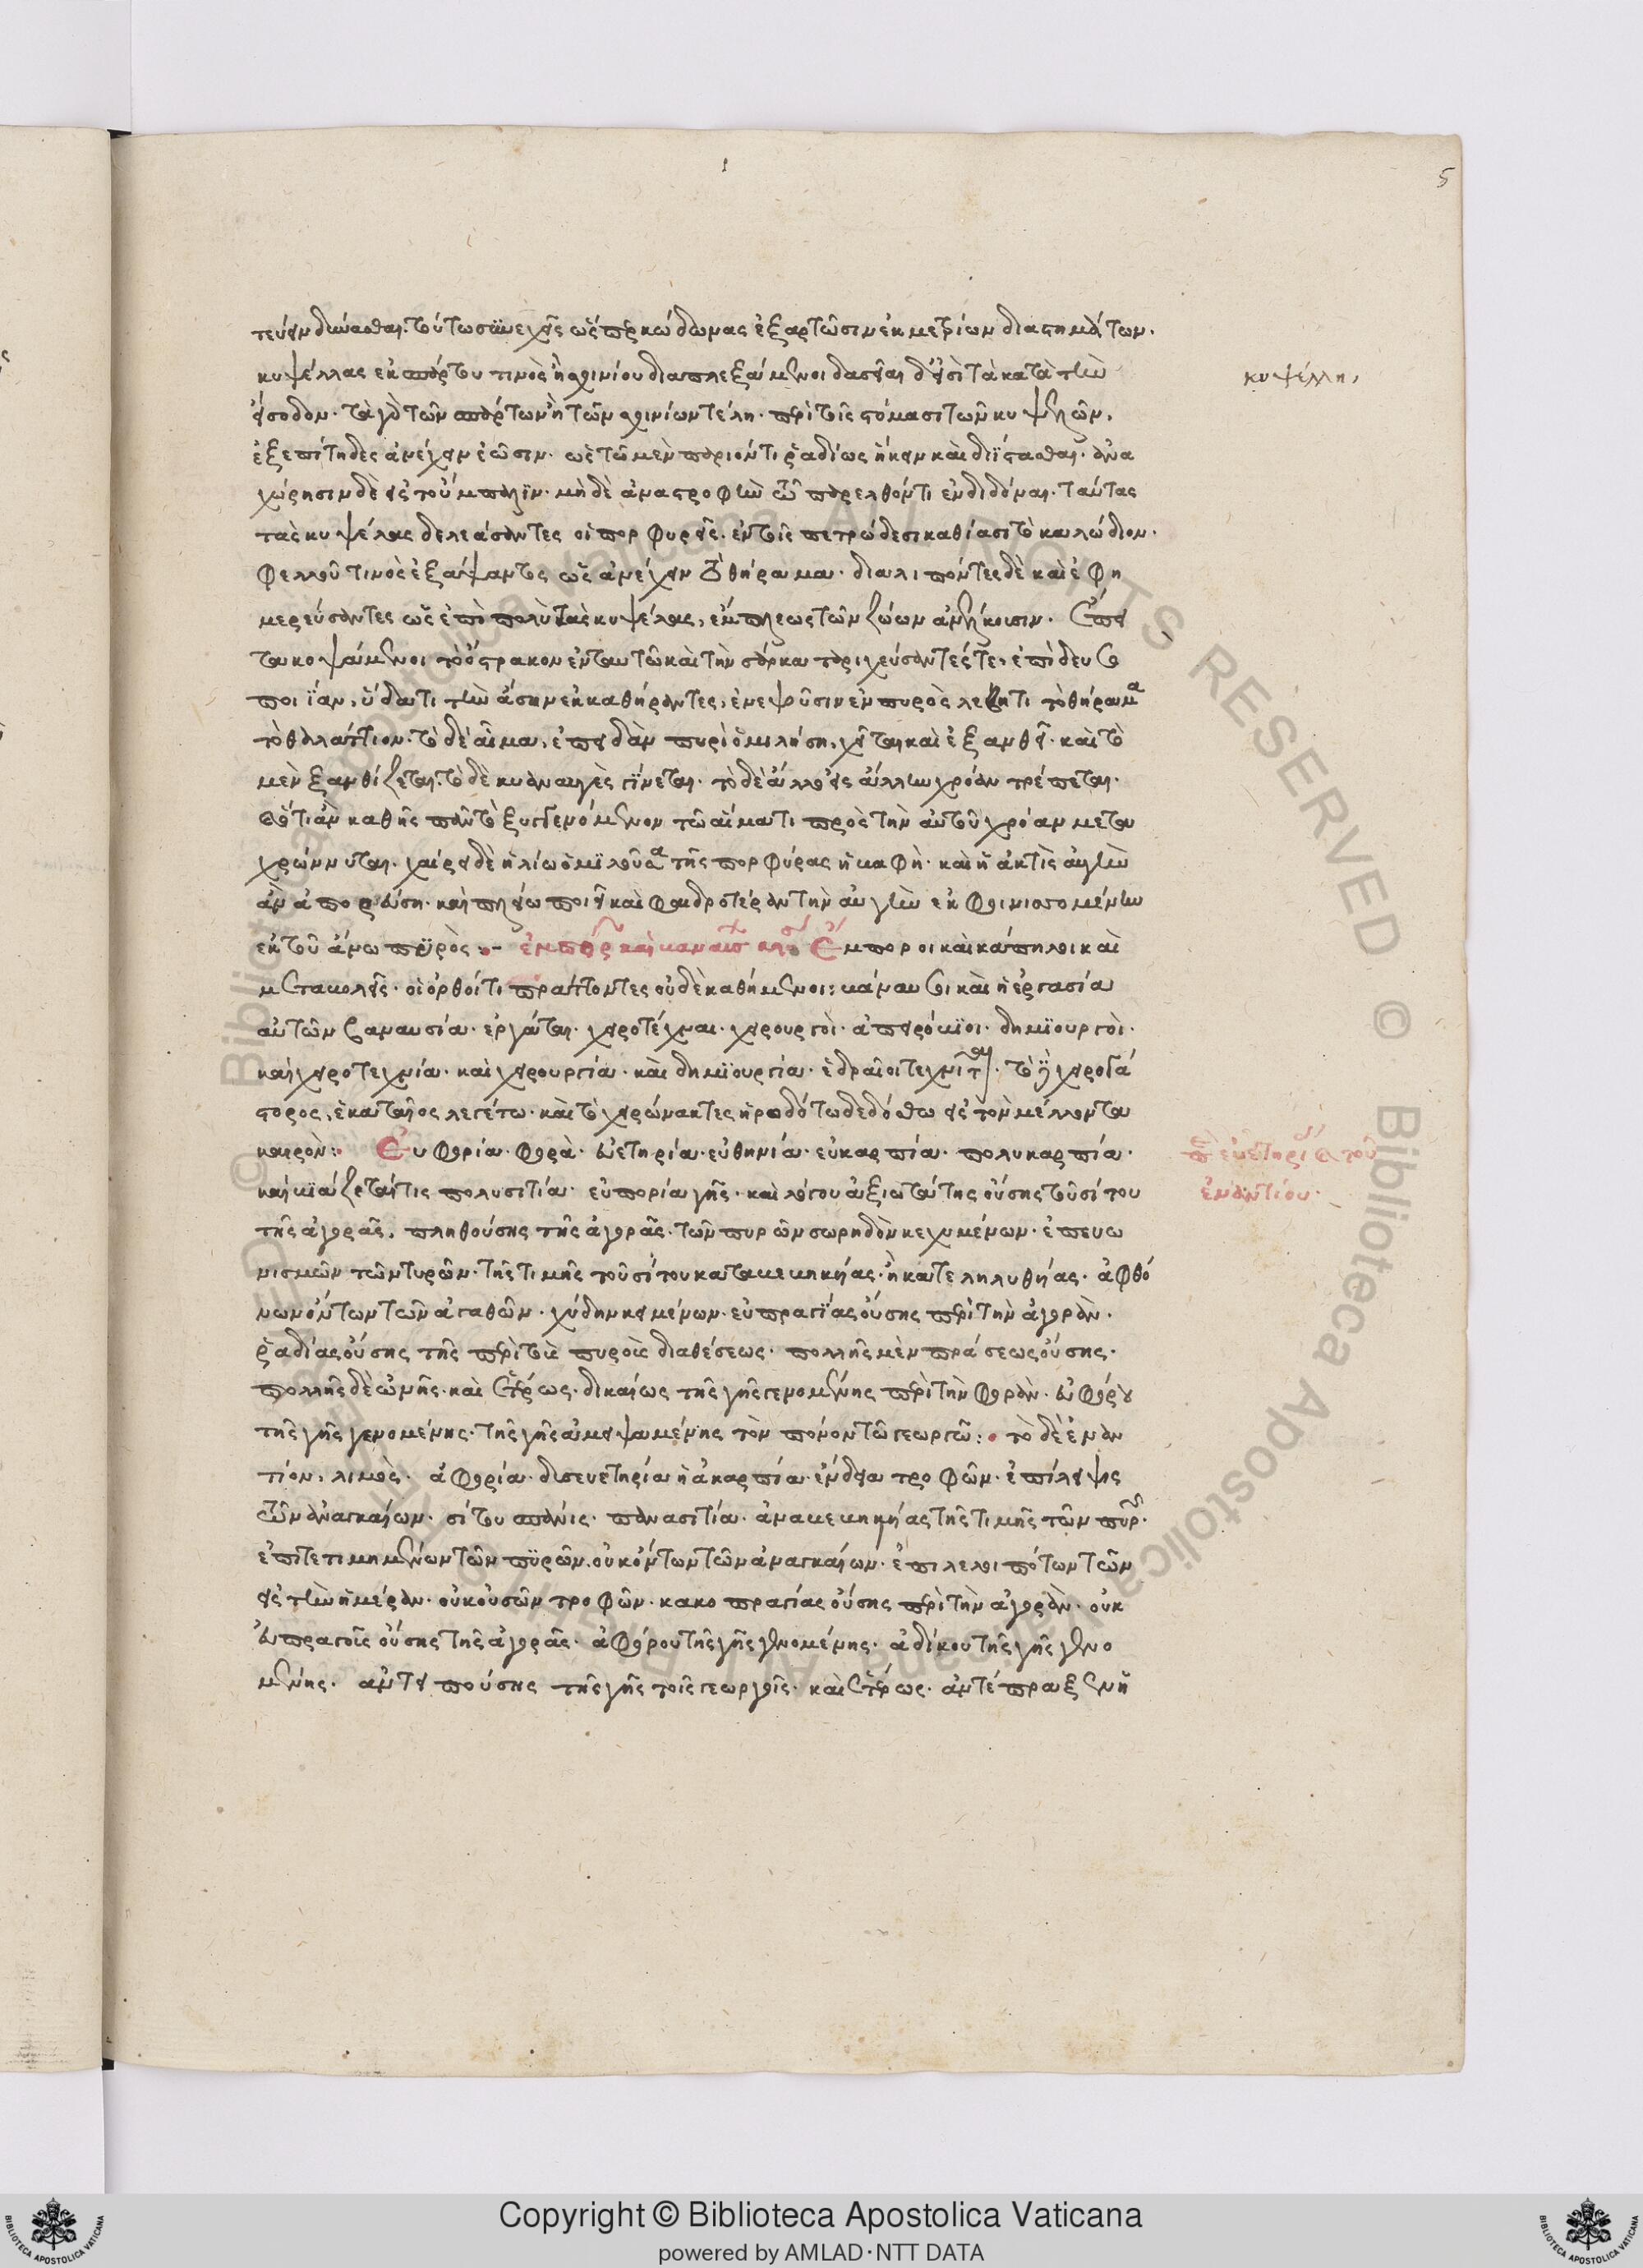 5
τεύειν δύνασθαι. τούτω συνεχεῖς ὥσπερ κώδωνας ἐξαρτῶσιν ἐκ μετρίων διαστημάτων.
κυψέλλας ἐκ σπάρτου τινὸς ἢ σχινίου διαπλεξάμενοι δασεῖαι δ' εἰσὶ τὰ κατὰ τὴν
κυψέλλη,
εἴσοδον. τὰ γὰρ τῶν σπάρτων ἢ τῶν σχινίων τέλη. περὶ τοῖς στόμασι τῶν κυψελῶν,
ἐξεπίτηδες ἀνέχειν ἐῶσιν. ὡς τῶ μὲν παριόντι ῥαδίως ἥκειν καὶ διΐστασθαι. ἀνα
χώρησιν δὲ εἰς τοὔμπαλιν. μὴ δὲ ἀναστροφὴν τῶ παρελθόντι ἐνδιδόναι. ταύτας
τὰς κυψέλας δελεάσαντες οἱ πορφυρεῖς. ἐν τοῖς πετρώδεσι καθίασι τὸ καλώδιον.
φελλοῦ τινὸς ἐξάψαντες ὡς ἀνέχειν τὸ θήραμα. διαλιπόντες δὲ καὶ ἐφη
μερεύσαντες ὡς ἐπὶ πολὺ τὰς κυψέλας, ἔμπλεως τῶν ζώων ἀνέλκουσιν. Ἔπει
τα κοψάμενοι τὸ ὄστρακον ἐν ταυτῶ καὶ τὴν σάρκα ταριχεύσαντές τε, ἐπίδευ
ποιΐαν, ὕδατι τὴν ἄσην ἐκκαθήραντες, ἐνεψοῦσιν ἐν πυρὸς λέβητι τὸ θήραμα
τὸ θαλάττιον. τὸ δὲ αἷμα, ἐπειδὰν πυρὶ ὁμιλήση, χεῖται καὶ ἐξανθεῖ. καὶ τὸ
μὲν ξανθίζεται. τὸ δὲ κυαναυγὲς γίνεται. τὸ δὲ ἄλλο εἰς ἄλλην χρόαν τρέπεται.
ὅτι ἂν καθῆς πᾶν τὸ ξυγγενόμενον τῶ αἵματι πρὸς τὴν αὐτοῦ χρόαν μετα
χρώννυται. χαίρει δὲ ἡλίω ὁμιλοῦσα τῆς πορφύρας ἡ βαφὴ. καὶ ἡ ἀκτὶς αὐτὴν
ἀναπορσεύση. καὶ πλείω ποιεῖ καὶ φαιδροτέραν τὴν αὐγὴν ἐκφοινισσομένην
ἐκ τοῦ ἄνω πυρὸς :- ἔμπορ καὶ βαναύσ κλησ Ἔμποροι καὶ κάπηλοι καὶ
μεταβολεῖς. οἱ ὀρθοί τι πράττοντες οὐδὲ καθήμενοι: βάναυσοι καὶ ἡ ἐργασία
αὐτῶν βαναυσία. ἐργάται. χειροτέχναι. χειρουργοὶ. ἀπειρόβιοι. δημιουργοὶ.
καὶ χειροτεχνία. καὶ χειρουργία. καὶ δημιουργία. ἑδραῖοι τεχνῖται. τὸ γὰρ χειρογά
στορος, ἑκαταῖος λεγέτω. καὶ τὸ χειρώνακτες ἡροδότω δεδόσθω εἰς τὸν μέλλοντα
καιρὸν: Εὐφορία. φορὰ. εὐετηρία. εὐθηνία. εὐκαρπία. πολυκαρπία.
περὶ εὐετηρίας καὶ τοῦ
καὶ βιάζεταί τις πολυσιτία. εὐπορία γῆς. καὶ λόγου ἀξιωτάτης οὔσης τοῦ σίτου
ἐναντίου.
τῆς ἀγορᾶς. πληθούσης τῆς ἀγορᾶς. τῶν πυρῶν σωρηδὸν κεχυμένων. ἐπευω
νισμῶν τῶν πυρῶν. τῆς τιμῆς τοῦ σίτου καταβεβηκυίας. ἢ κατεληλυθυίας. ἀφθό
νων ὄντων τῶν ἀγαθῶν. χύδην κειμένων. εὐπραγίας οὔσης περὶ τὴν ἀγορὰν.
ῥαδίας οὔσης τῆς περὶ τοὺς πυροὺς διαθέσεως. πολλῆς μὲν πράσεως οὔσης.
πολλῆς δὲ ὠνῆς. καὶ ἑτέρως. δικαίως τῆς γῆς γενομένης περὶ τὴν φορὰν. εὐφόρου
τῆς γῆς γενομένης. τῆς γῆς ἀμειψαμένης τὸν πόνον τῶ γεωργῶ: τὸ δὲ ἐναν
τίον, λιμὸς. ἀφορία. δυσευετηρία ἢ ἀκαρπία. ἔνδεια τροφῶν. ἐπίλειψις
τῶν ἀναγκαίων. σίτου σπάνις. σπανοσιτία. ἀναβεβηκυίας τῆς τιμῆς τῶν πυρ.
ἐπιτετιμημένων τῶν πυρῶν. οὐκ ὄντων τῶν ἀναγκαίων. ἐπιλελοιπότων τῶν
εἰς τὴν ἡμέραν. οὐκ οὐσῶν τροφῶν. κακοπραγίας οὔσης περὶ τὴν ἀγορὰν. οὐκ
εὐπραγοῦς οὔσης τῆς ἀγορᾶς. ἀφόρου τῆς γῆς γενομένης. ἀδίκου τῆς γῆς γενο
μένης. ἀντειπούσης τῆς γῆς τοῖς γεωργοῖς. καὶ ἑτέρως. ἀντέπραξεν ἡ
Copyright © Biblioteca Apostolica Vaticana
powered by AMLAD·NTT DATA